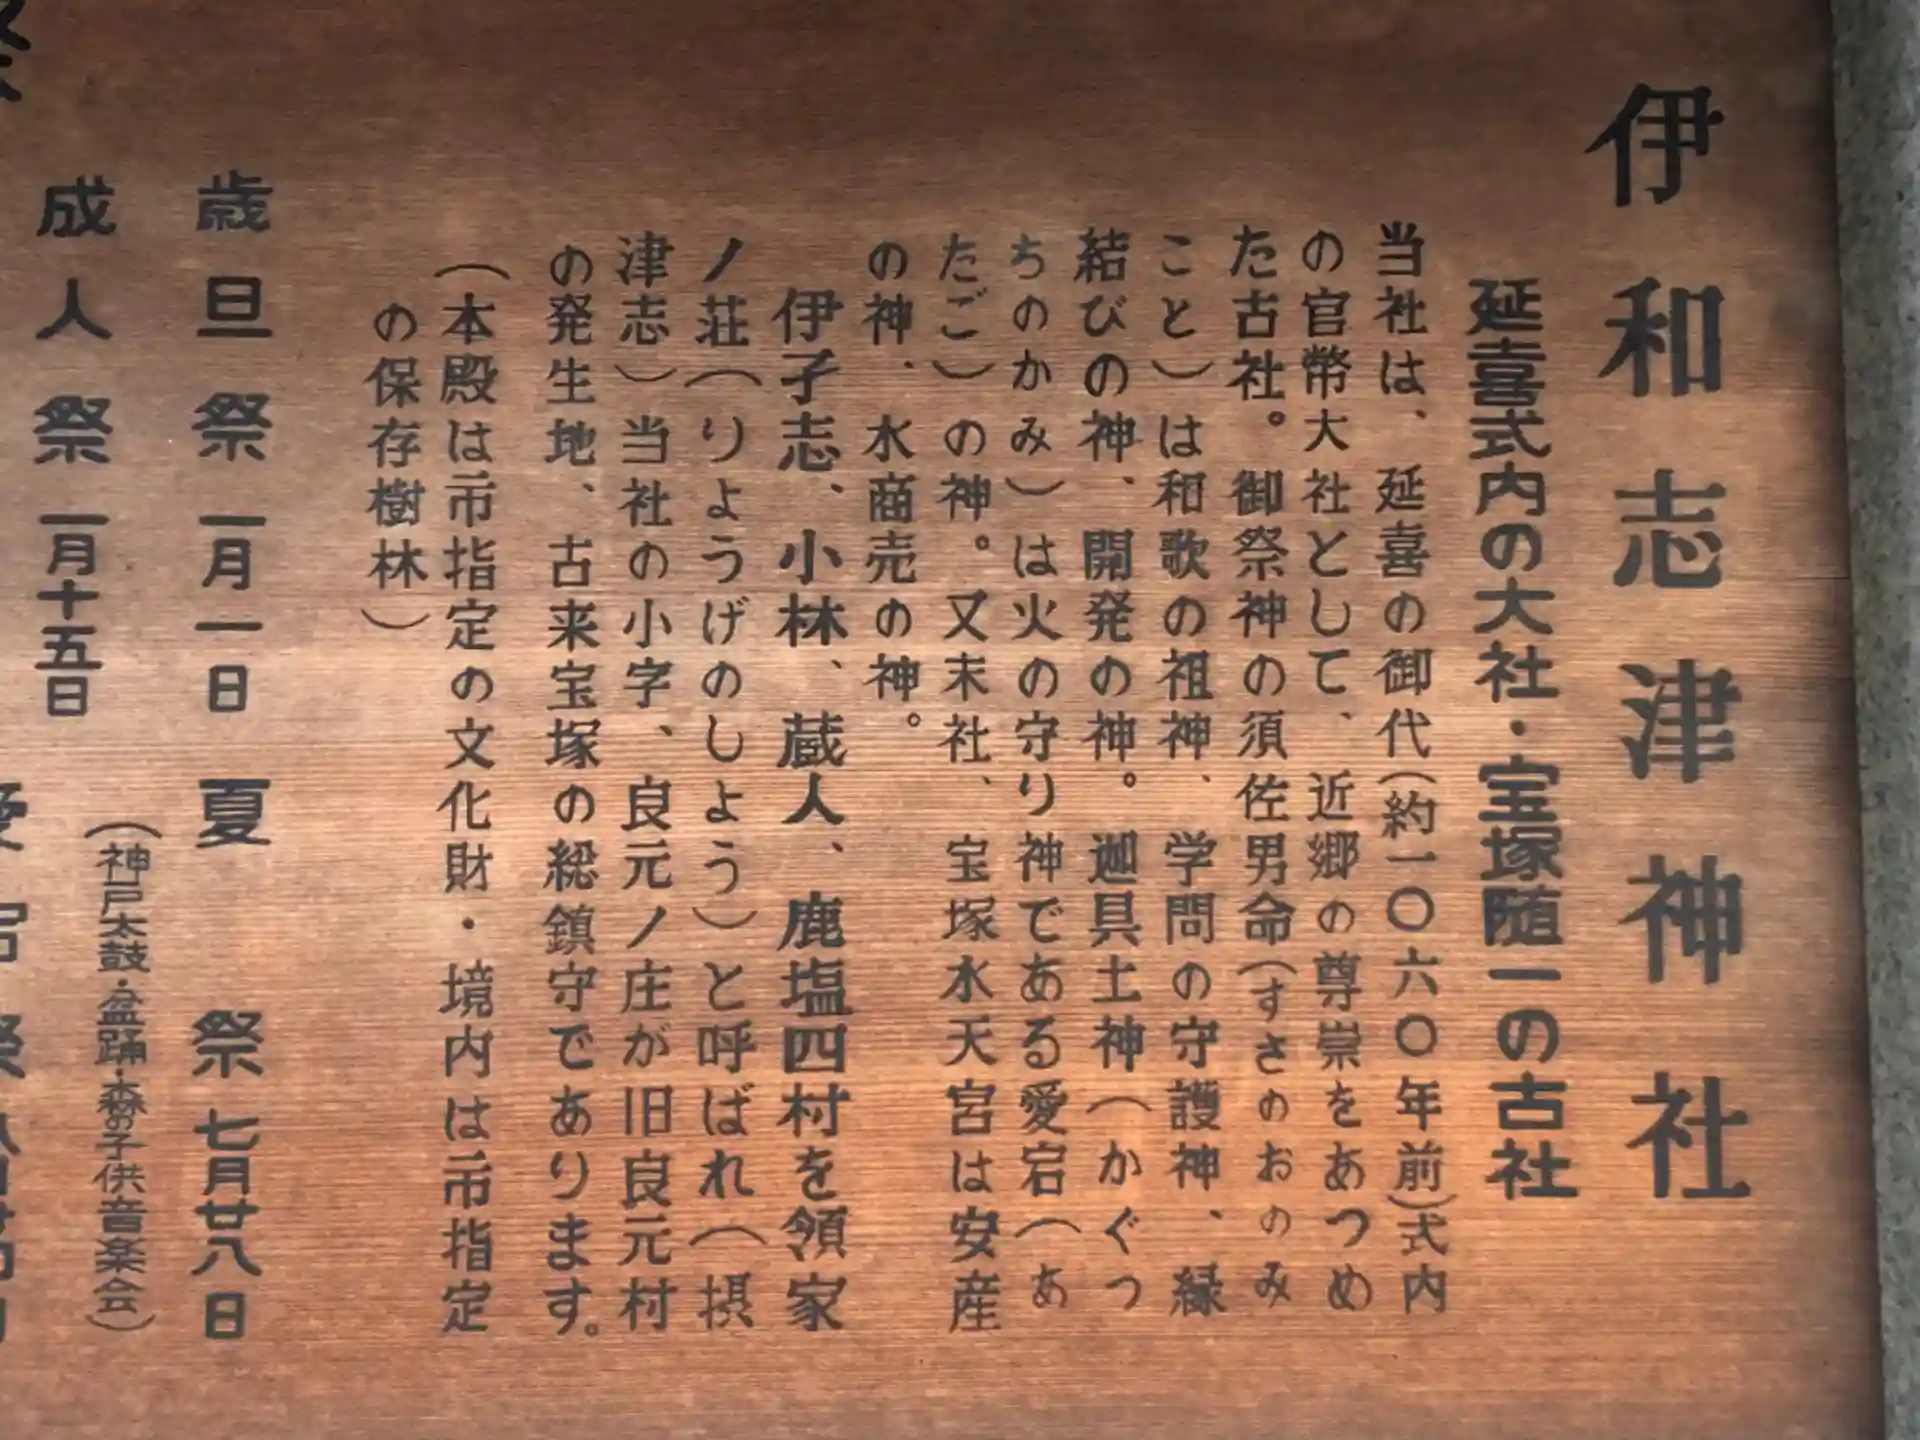 伊和志津神社
延喜式内の大社・宝塚随一の古社
当社は、延喜の御代(約一〇六〇年前)式内
の官幣大社として、近郷の尊崇をあつめ
た古社。御祭神の須佐男命(すさのおのみ
こと)は和歌の祖神、学問の守護神、縁
結びの神、開発の神。迦具土神(かぐつ
ちのかみ)は火の守り神である愛宕(あ
たご)の神。又末社、宝塚水天宮は安産
の神、水商売の神。
伊孑志、小林、蔵人、鹿塩四村を領家
ノ荘(りようげのしよう)と呼ばれ(摂
津志)当社の小字、良元ノ庄が旧良元村
の発生地、古来宝塚の総鎮守であります。
(本殿は市指定の文化財・境内は市指定
の保存樹林)
歳旦祭 一月一日 夏祭 七月廿八日
(神戸太鼓・盆踊・森の子供音楽会)
成人祭 一月十五日